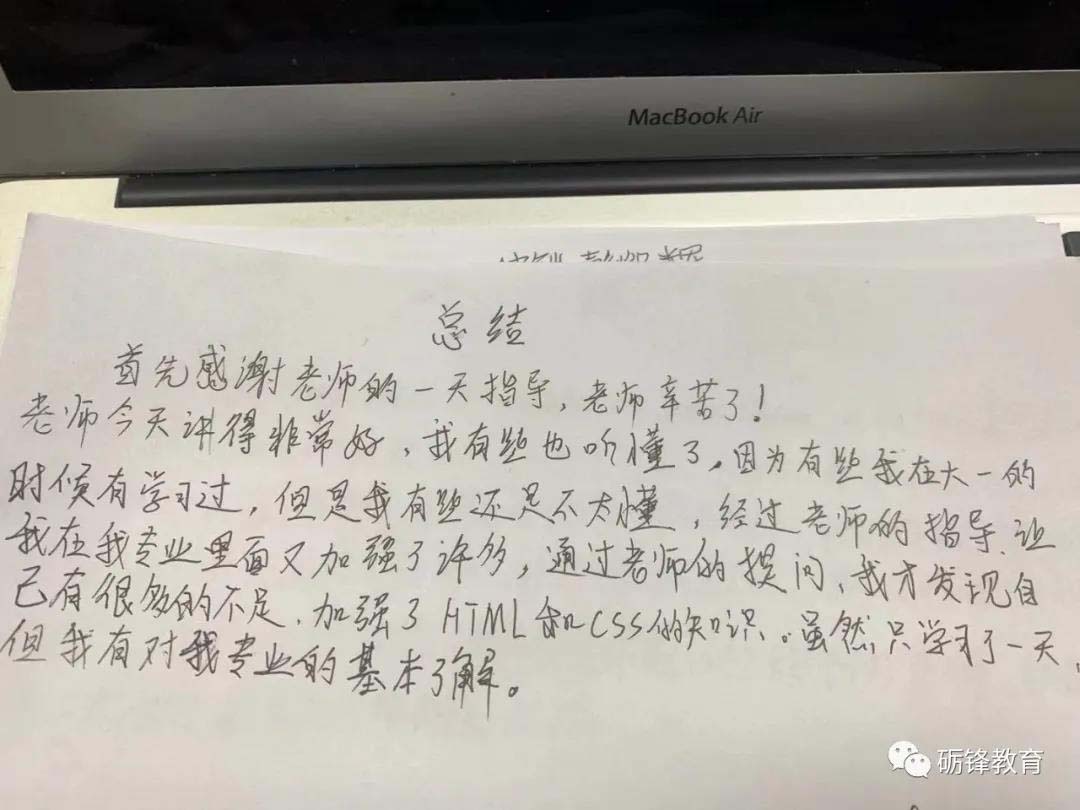 MacBook Air
总结
首先感谢老师的一天指导，老师辛苦了！
老师今天讲得非常好，我有题也听懂了，因为有题我在大一的
时候有学习过，但是我有题还是不太懂，经过老师的指导，让
我在我专业里面又加强了许多，通过老师的提问，我才发现自
己有很多的不足，加强了HTML和CSS的知识。虽然只学习了一天，
但我有对我专业的基本了解。
砺锋教育